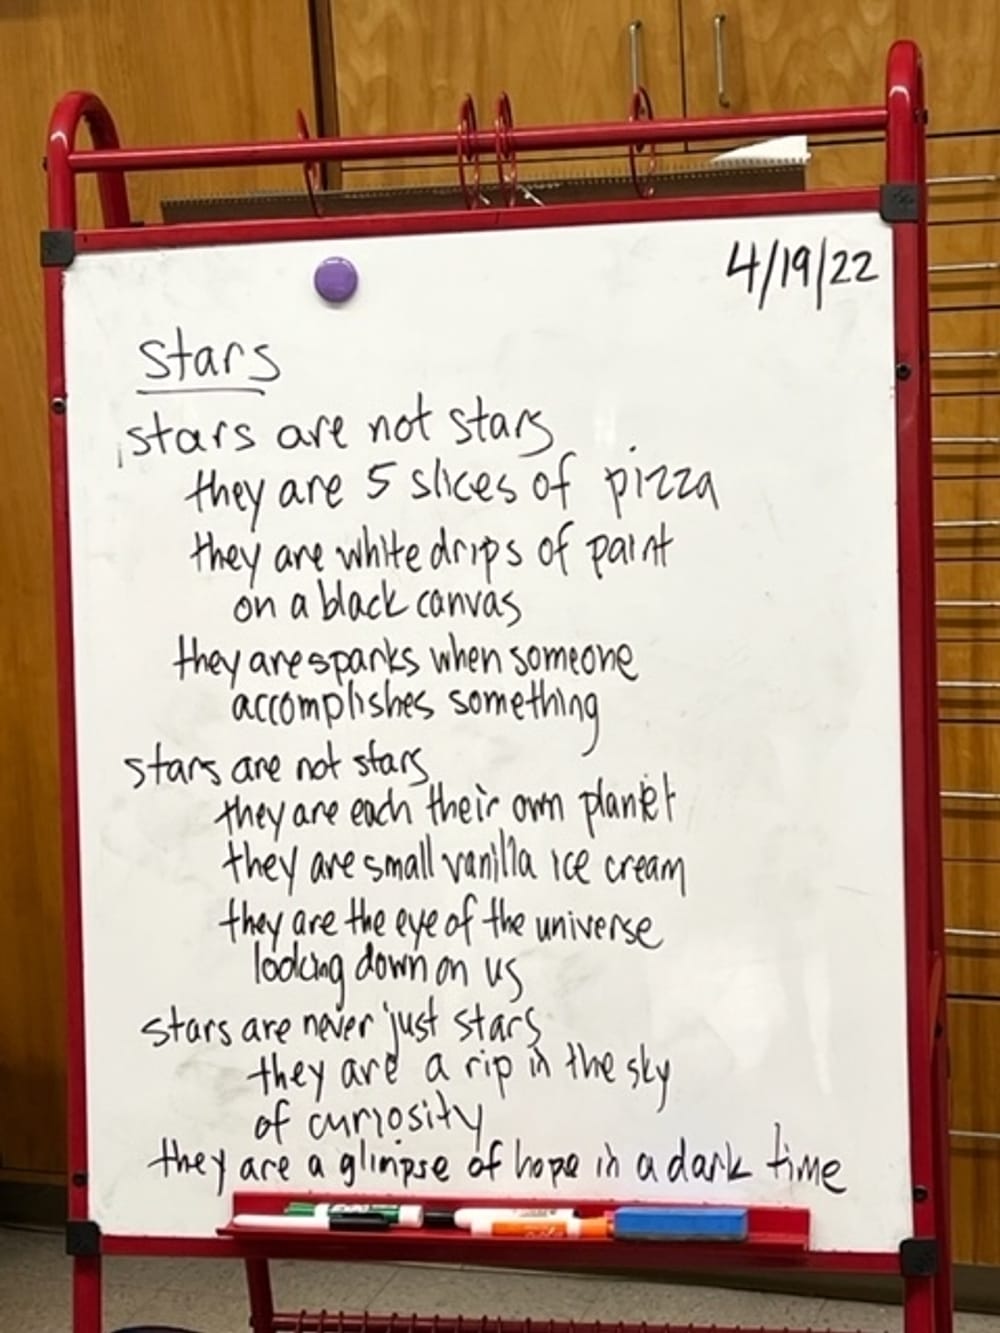 4/19/22
stars
stars are not stars
they are 5 slices of pizza
they are white drips of paint
on a black canvas
they are sparks when someone
accomplishes something
stars are not stars
they are each their own planet
they are small vanilla ice cream
they are the eye of the universe
looking down on us
stars are never just stars
they are a rip in the sky
of curiosity
they are a glimpse of hope in a dark time